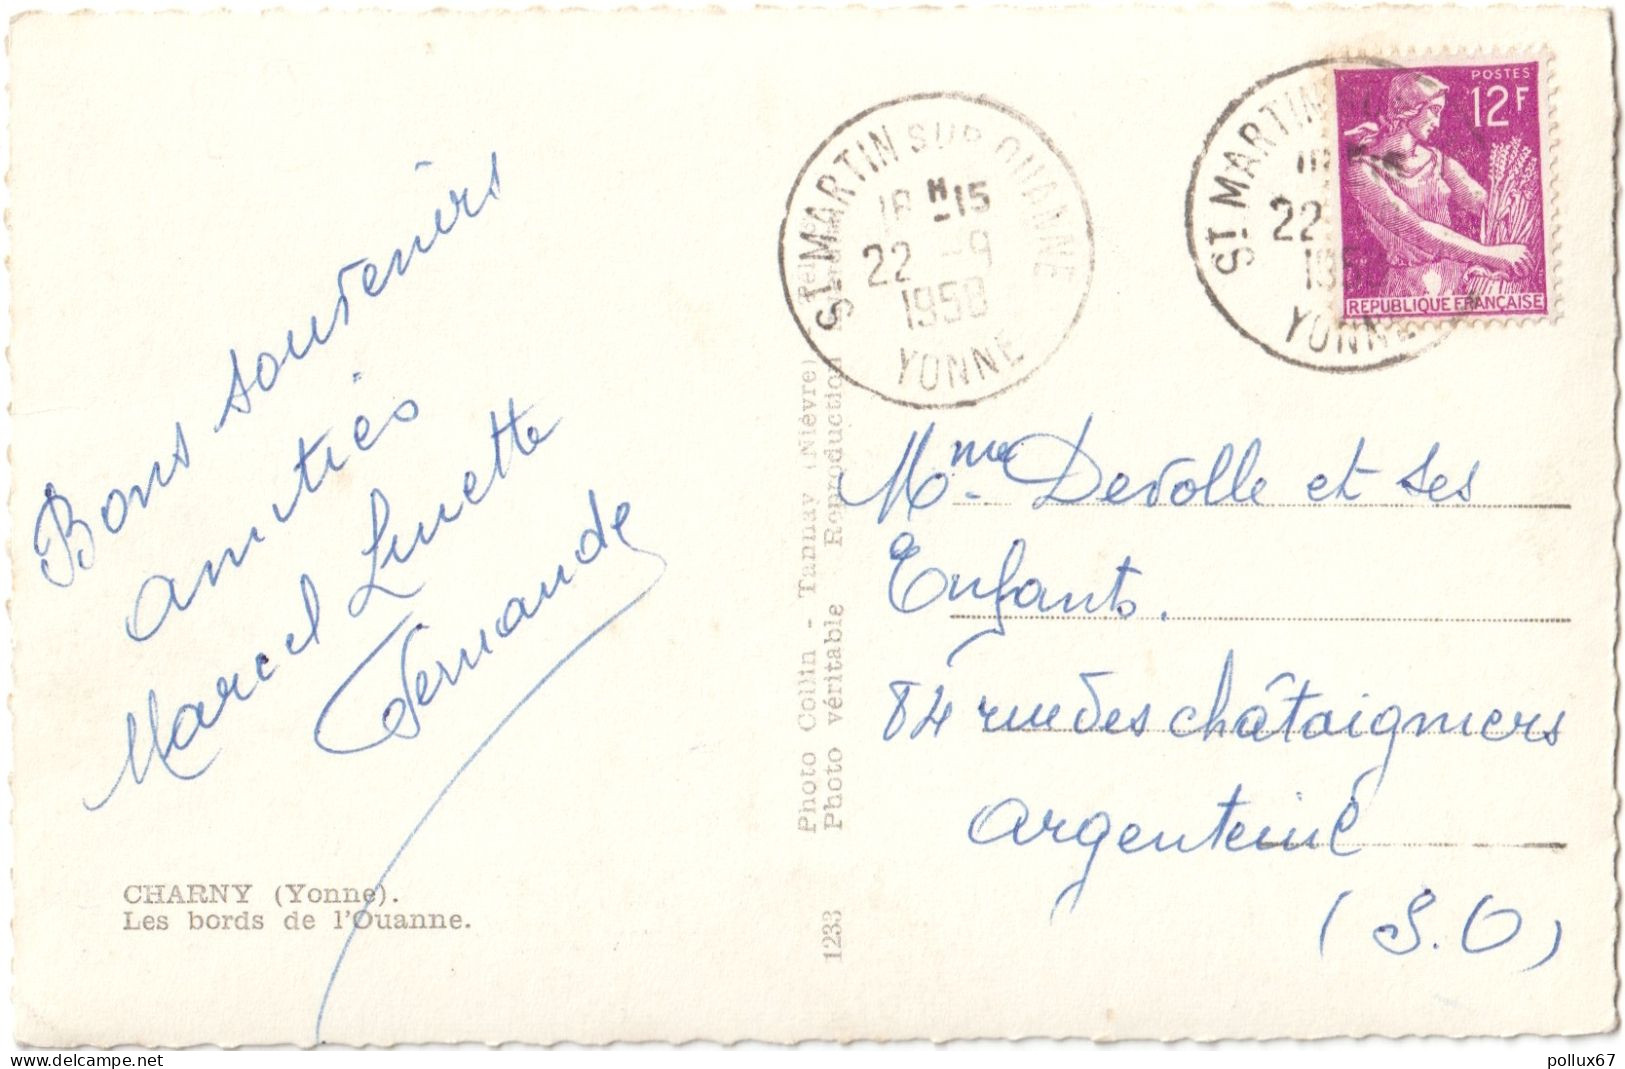 Bons souvenirs
amitiés
Marcel Lucette
Fernande
CHARNY (Yonne).
Les bords de l'Ouanne.
Photo Collin - Tannay (Nièvre)
Photo véritable Reproduction
1233
ST MARTIN SUR OUANNE
18 H 15
22 - 9
1958
YONNE
ST MARTIN
22
195
YONNE
POSTES
12F
REPUBLIQUE FRANÇAISE
Mme Devolle et ses
Enfants.
84 rue des châtaigniers
Argenteuil
(S.O)
www.delcampe.net
pollux67